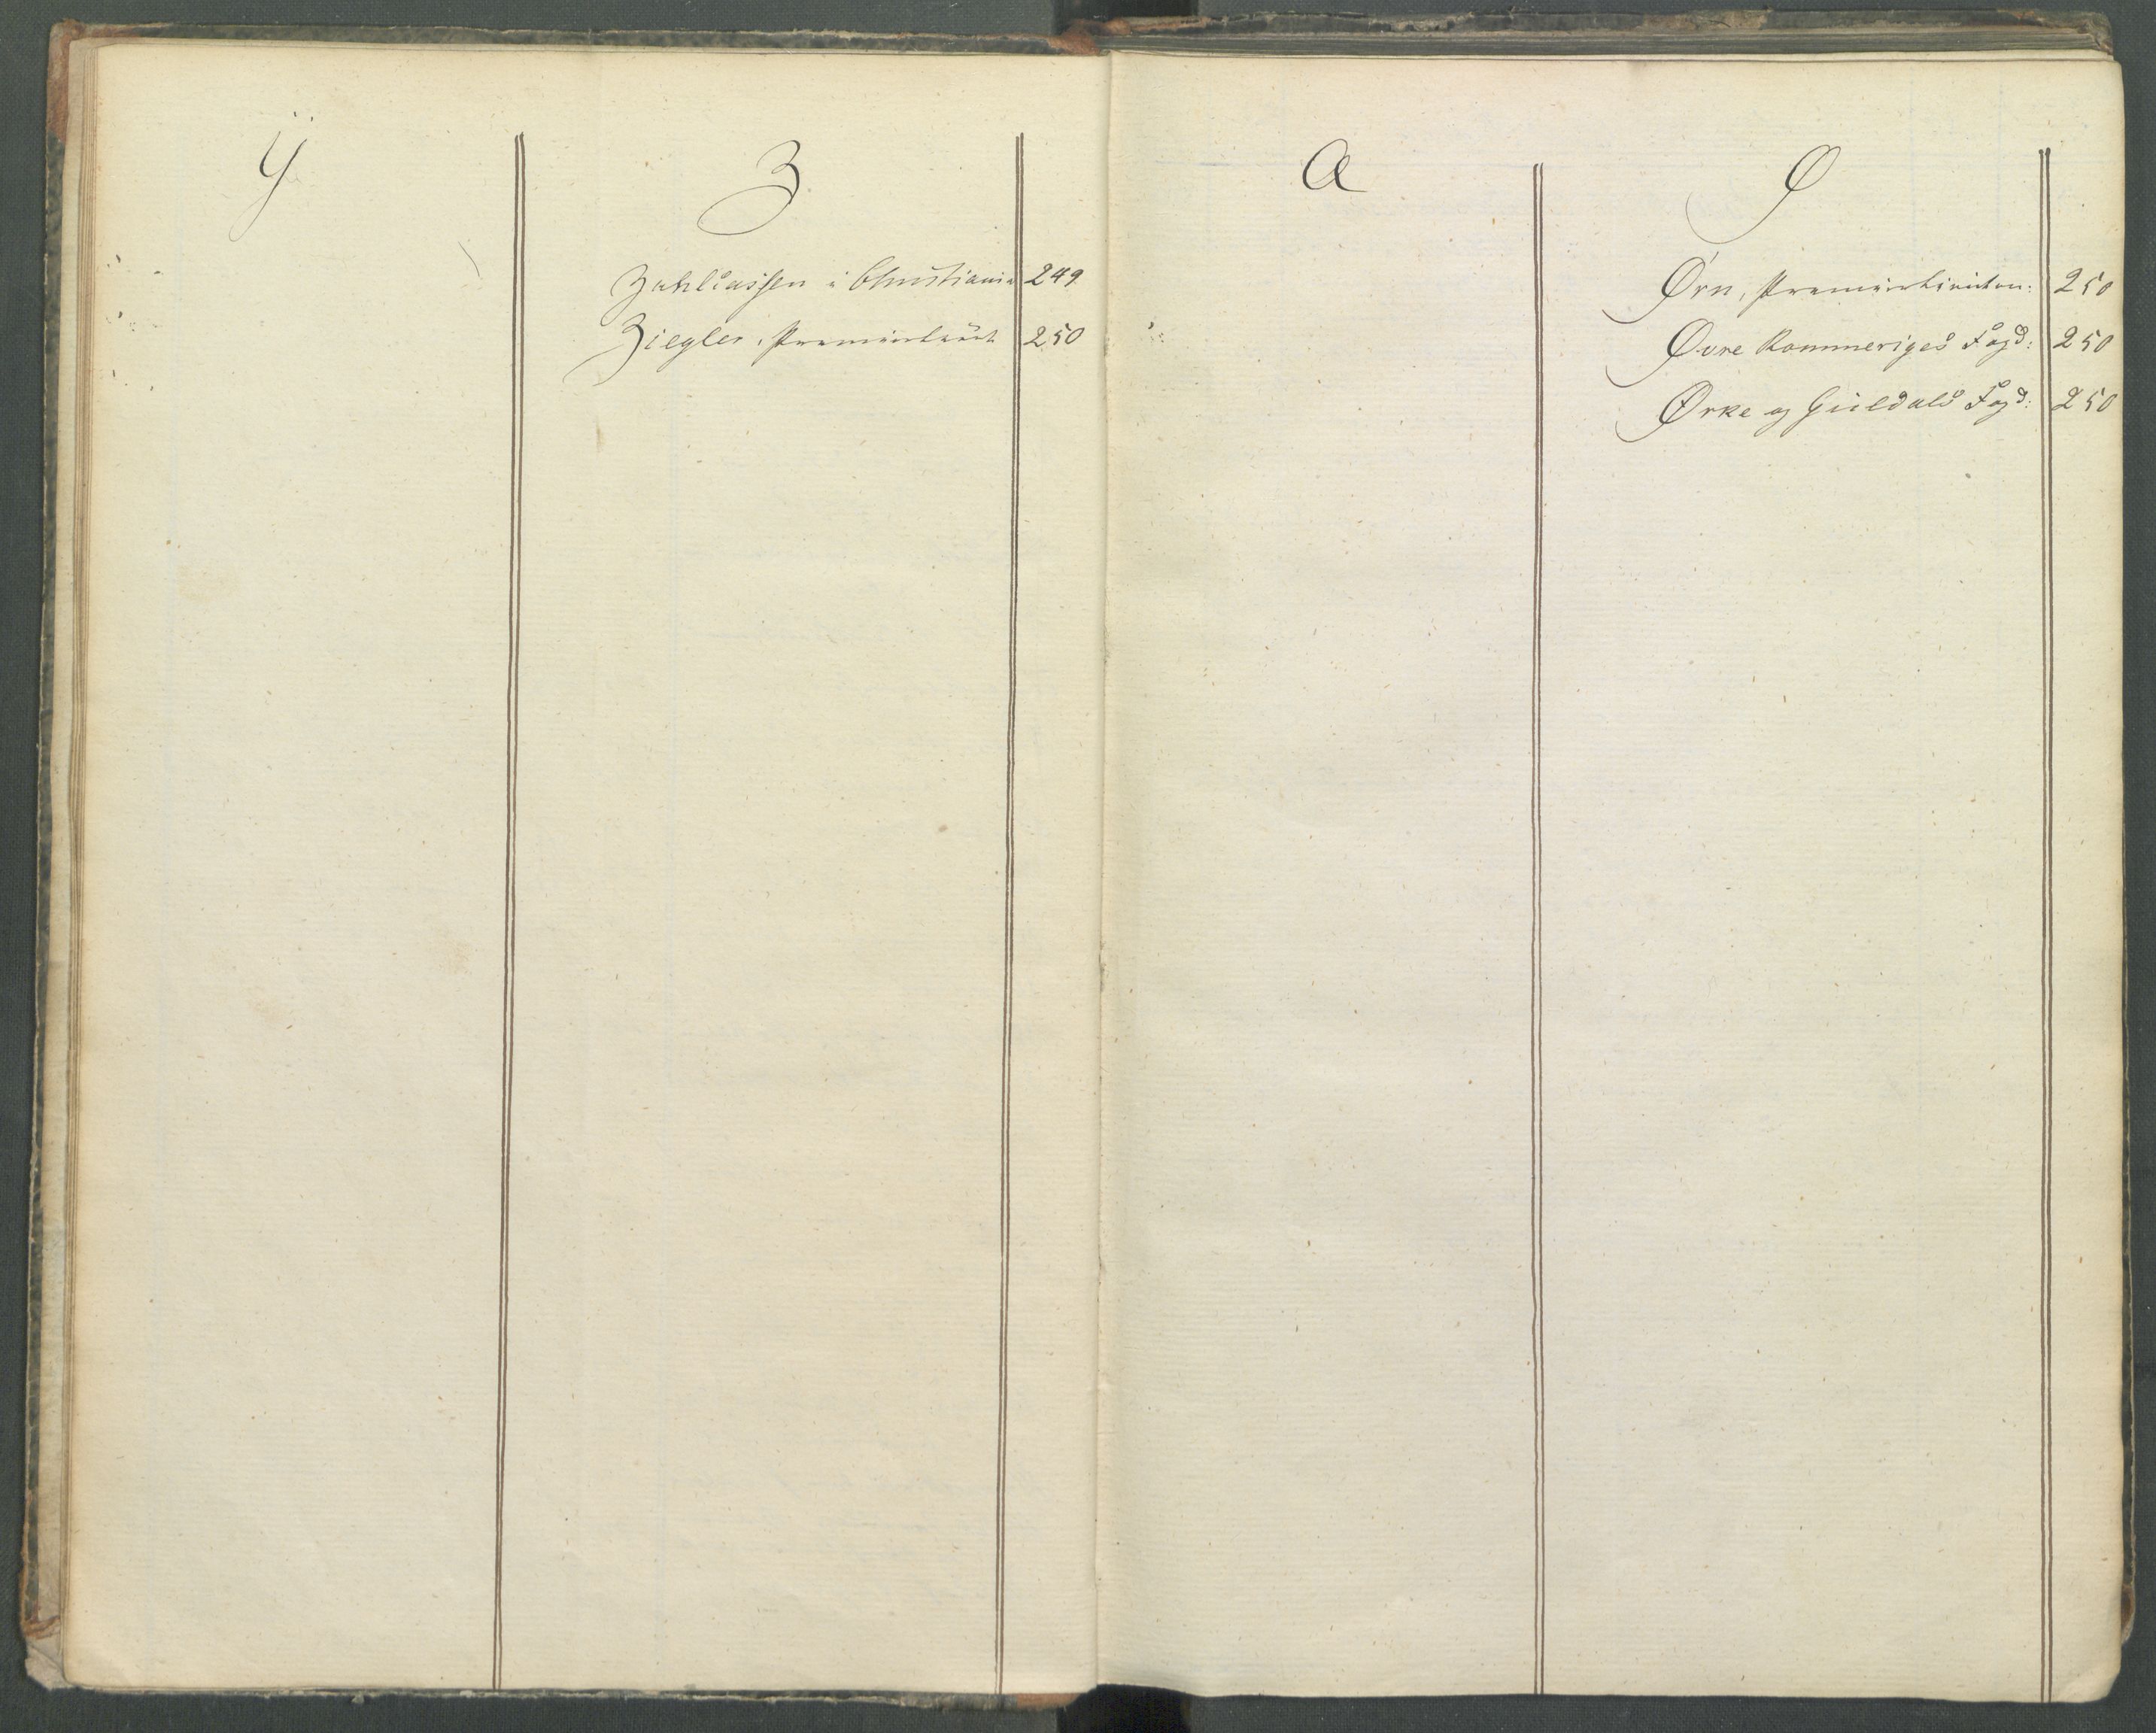 Ÿ
Z
Zahlcassen i Christiania 249
Ziegler, Premierlieut 250
Æ
Ø
Ørn, Premierlieuten: 250
Øvre Rommeriges Fogd: 250
Ørke og Guldals Fogd: 250